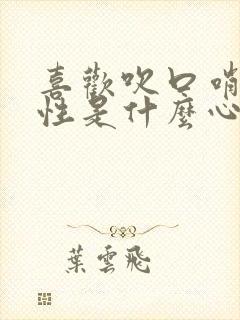 喜歡吹口哨
性是什麼心
葉雲飛